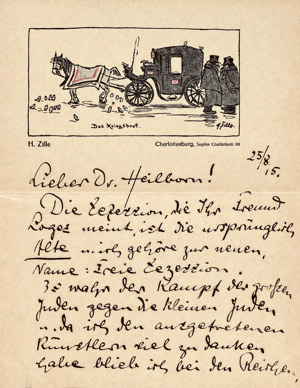 Das Kriegsbrot.
H. Zille
H. Zille
Charlottenburg, Sophie Charlottestr. 88
25/8
15.
Lieber Dr. Heilborn!
Die Sezession, die Ihr Freund
meint, ist die ursprünglich
Alte u. ich gehöre zur neuen,
Name: Freie Sezession.
Es wahr der Kampf der großen
Juden gegen die kleinen Juden
u. da ich den ausgetretenen
Künstlern viel zu danken
habe blieb ich bei den